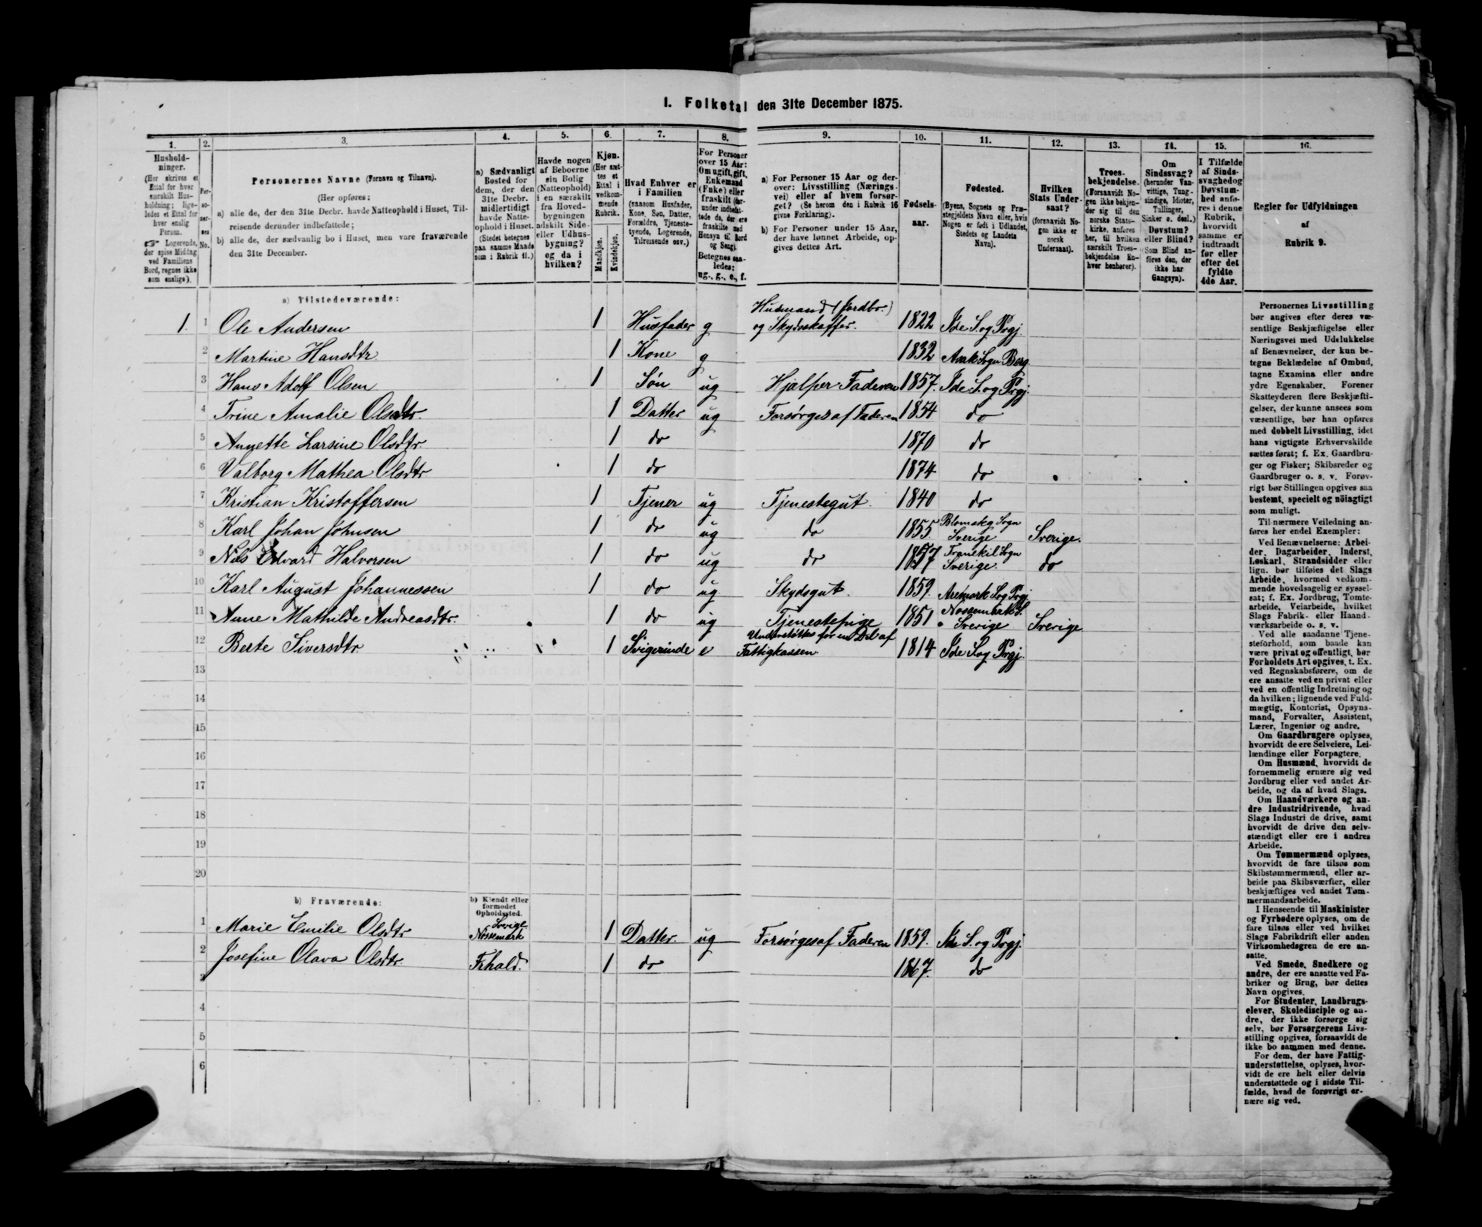 I. Folketal den 31te December 1875.
1. 2. 3. 4. 5. 6. 7. 8. 9. 10. 11. 12. 13. 14. 15. 16.
Husholdninger.
(Her skrives et Ettal for hver særskilt Husholdning; ligeledes et Ettal for hver enslig Person.
☞ Logerende, der spise Middag ved Familiens Bord, regnes ikke som enslige).
Personernes No.
Personernes Navne (Fornavn og Tilnavn).
(Her opføres:
a) alle de, der den 31te Decbr. havde Natteophold i Huset, Tilreisende derunder indbefattede;
b) alle de, der sædvanlig bo i Huset, men vare fraværende den 31te December.
a) Sædvanligt Bosted for dem, der den 31te Decbr. midlertidigt havde Natteophold i Huset.
(Stedet betegnes paa samme Maade som i Rubrik 11.)
Havde nogen af Beboerne sin Bolig (Natteophold) i en særskilt fra Hovedbygningen adskilt Side- eller Udhusbygning? og da i hvilken?
Kjøn.
(Her sættes et Ettal i vedkommende Rubrik.
Mandkjøn.
Kvindekjøn.
Hvad Enhver er i Familien
(saasom Husfader, Kone, Søn, Datter, Forældre, Tjenestetyende, Logerende, Tilreisende osv.)
For Personer over 15 Aar: Om ugift, gift, Enkemand (Enke) eller fraskilt
Betegnes saaledes: ug., g., e., f.
a) For Personer 15 Aar og derover: Livsstilling (Næringsvei) eller af hvem forsørget? (Se herom den i Rubrik 16 givne Forklaring).
b) For Personer under 15 Aar, der have lønnet Arbeide, opgives dettes Art.
Fødselsaar.
Fødested.
(Byens, Sognets og Præstegjeldets Navn eller, hvis Nogen er født i Udlandet, Stedets og Landets Navn).
Hvilken Stats Undersaat?
(foranavidt Nogen ikke er norsk Undersaat).
Troesbekjendelse.
Om Sindssvag? (herunder Vanvittige, Tungsindige, Idioter, Tullinger, Sinker o. desl.)
Døvstum? eller Blind?
I Tilfælde af Sindssvaghed og Døvstumhed anføres i denne Rubrik, hvorvidt samme er indtraadt før eller efter det fyldte 4de Aar.
Regler for Udfyldningen af Rubrik 9.
a) Tilstedeværende:
1. 1 Ole Andersen 1 Husfader g Husmand (Jordbr.) og Skydsskaffer. 1822 Ide S. og Prgj.
2 Martine Hansdtr 1 Kone g 1832 Aark Sogn Berg
3 Hans Adolf Olsen 1 Søn ug Hjælper Faderen 1857. Ide S. og Prgj.
4 Trine Amalie Olsdtr 1 Datter ug Forsørges af Faderen 1854 do
5 Annette Larsine Olsdtr. 1 do 1870 do
6 Valborg Mathea Olsdtr 1 do 1874 do
7 Kristian Kristoffersen 1 Tjener ug Tjenestegut. 1840 do
8 Karl Johan Johnsen 1 do ug do 1855 Blomskog Sogn Sverige Sverige.
9 Nils Edvard Halvorsen 1 do ug do 1857 Franekil Sogn Sverige. do
10 Karl August Johannessen 1 do ug Skydsgut. 1859. Aremark S. og Prgj.
11 Anne Mathilde Andreasdtr. 1 do ug Tjenestepige 1851 Nossemark S. Sverige Sverige
12 Berte Siversdtr 1 Svigerinde e Understøttes for en Del af Fattigkassen 1814 Ide S. og Prgj.
13
14
15
16
17
18
19
20
b) Fraværende:
b) Kjendt eller formodet Opholdssted.
1 Marie Emilie Olsdtr Sverige Nossemark 1 Datter ug Forsørges af Faderen 1859. Ide S. og Prgj.
2 Josefine Olava Olsdtr. Frhald. 1 do 1867. do
3
4
5
6
Personernes Livsstilling
bør angives efter deres væsentlige Beskjæftigelse eller
Næringsvei med Udelukkelse
af Benævnelser, der kun betegne Beklædelse af Ombud,
tagne Examina eller andre
ydre Egenskaber. Forener
Skatteyderen flere Beskjæftigelser, der kunne ansees som
væsentlige, bør han opføres
med dobbelt Livsstilling, idet
hans vigtigste Erhvervskilde
sættes først; f. Ex. Gaardbruger og Fisker; Skibsreder og
Gaardbruger o. s. v. Forøvrigt bør Stillingen opgives saa
bestemt, specielt og nøiagtigt
som muligt.
Til nærmere Veiledning anføres her endel Exempler:
Ved Benævnelserne: Arbeider, Dagarbeider, Inderst,
Løskarl, Strandsidder eller
lign. bør tilføies det Slags
Arbeide, hvormed vedkommende hovedsagelig er sysselsat; f. Ex. Jordbrug, Tomtearbeide, Veiarbeide, hvilket
Slags Fabrik- eller Haandværksarbeide o. s. v.
Ved alle saadanne Tjenesteforhold, som baade kan
være privat og offentligt, bør
Forholdets Art opgives, t. Ex.
ved Regnskabsførere, om de
ere ansatte ved en privat eller
ved en offentlig Indretning og
da hvilken; lignende ved Fuldmægtig, Kontorist, Opsynsmand, Forvalter, Assistent,
Lærer, Ingeniør og andre.
Om Gaardbrugere oplyses,
hvorvidt de ere Selveiere, Leilændinge eller Forpagtere.
Om Husmænd, hvorvidt de
fornemmelig ernære sig ved
Jordbrug eller ved andet Arbeide, og da af hvad Slags.
Om Haandværkere og andre Industridrivende, hvad
Slags Industri de drive, samt
hvorvidt de drive den selvstændigt eller ere i andres
Arbeide.
Om Tømmermænd oplyses,
hvorvidt de fare tilsøs som
Skibstømmermænd, eller arbeide paa Skibsværfter, eller
beskjæftiges ved andet Tømmermandsarbeide.
I Henseende til Maskinister
og Fyrbødere oplyses, om de
fare tilsøs eller ved hvilket
Slags Fabrikdrift eller anden
Virksomhedsgren de ere ansatte.
Ved Smede, Snedkere og
andre, der ere ansatte ved Fabriker og Brug, bør dettes
Navn opgives.
For Studenter, Landbrugselever, Skoledisciple og andre, der ikke forsørge sig
selv, bør Forsørgerens Livsstilling opgives, forsaavidt de
ikke bo sammen med denne.
For dem, der have Fattigunderstøttelse, oplyses, hvorvidt de ere helt eller delvis
understøttede og i sidste Tilfælde, hvad de forøvrigt ernære sig ved.